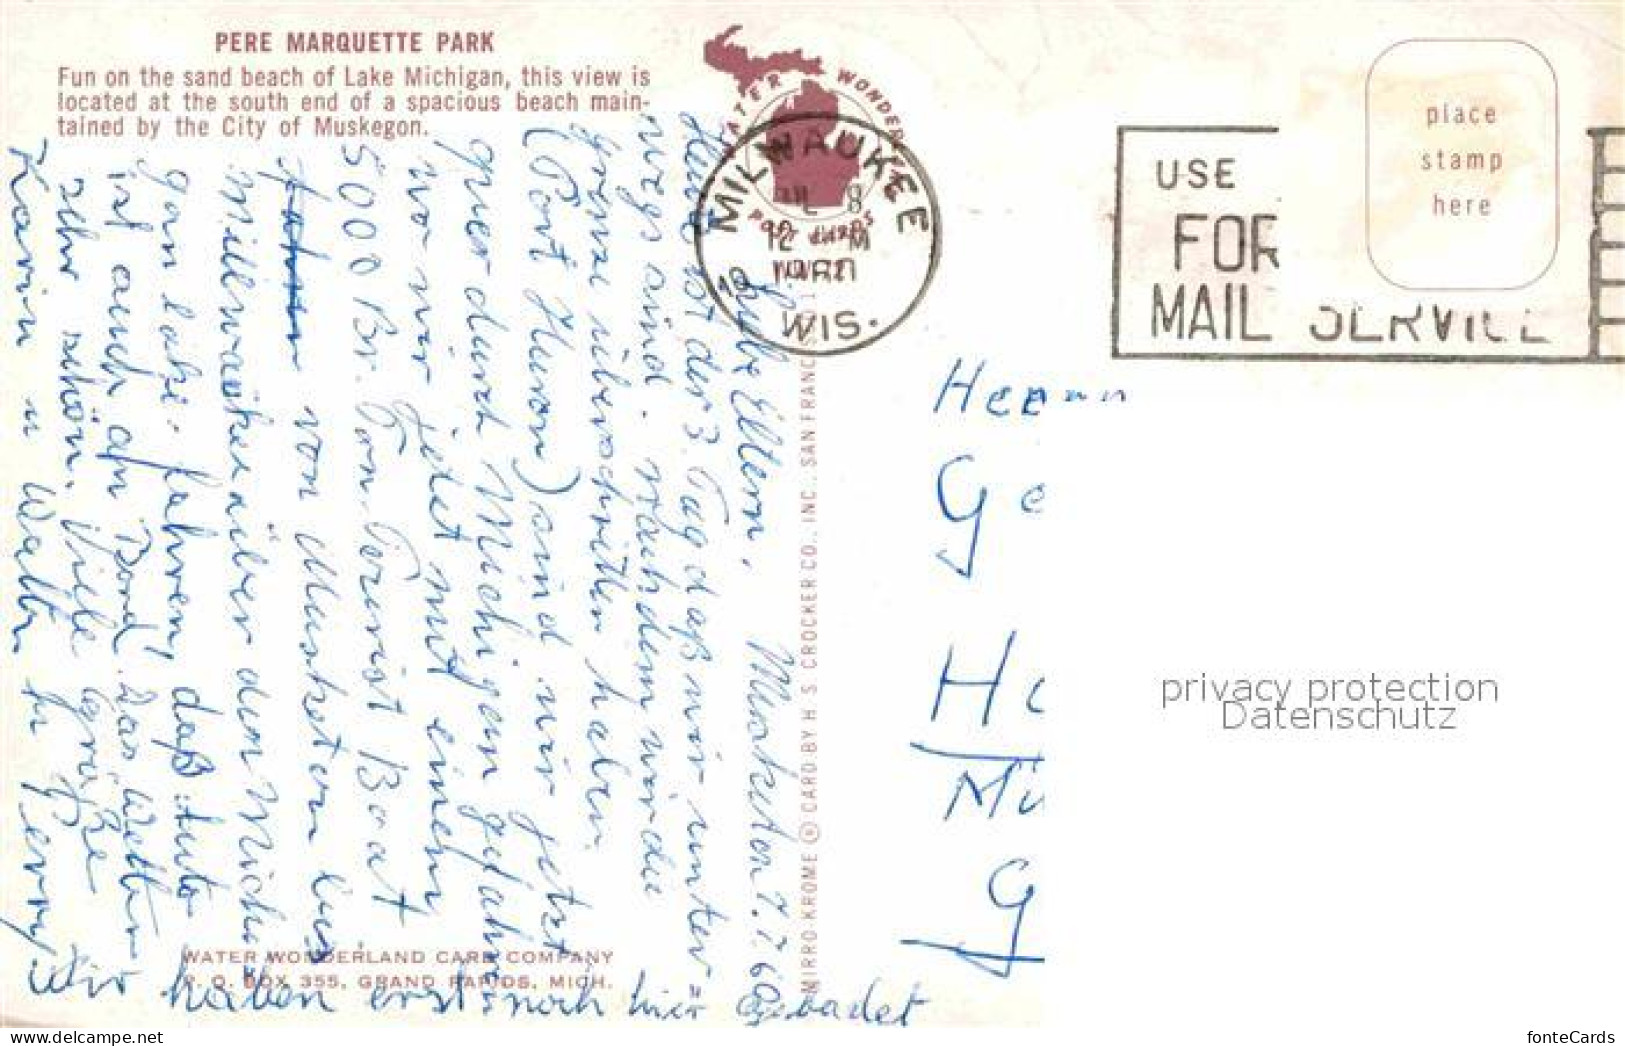 PERE MARQUETTE PARK
Fun on the sand beach of Lake Michigan, this view is
located at the south end of a spacious beach main-
tained by the City of Muskegon.
WATER WONDERLAND
MILWAUKEE
8
12 M
19
WIS.
USE
FOR
MAIL SERVICE
place
stamp
here
Liebe Eltern, Musketon 7.7.60
Heute ist der 3. Tag daß wir unter=
wegs sind. Nachdem wir die
Grenze überschritten haben
(Port Huron) sind wir jetzt
quer durch Michigan gefahren
wo wir jetzt mit einem
5000 Br. Ton. Turist Boat
von Musketon bis
Millwaukee über den Michi
gan lake fahren, daß Auto
ist auch an Bord. Das Wetter
sehr schön. Viele Grüße
Karin u Walter
Wir haben erst noch hier gebadet
MIRRO-KROME ® CARD BY H. S. CROCKER CO., INC., SAN FRANC
WATER WONDERLAND CARD COMPANY
P. O. BOX 355, GRAND RAPIDS, MICH.
Herrn
Ge
Ha
Mü
G
privacy protection
Datenschutz
fonteCards